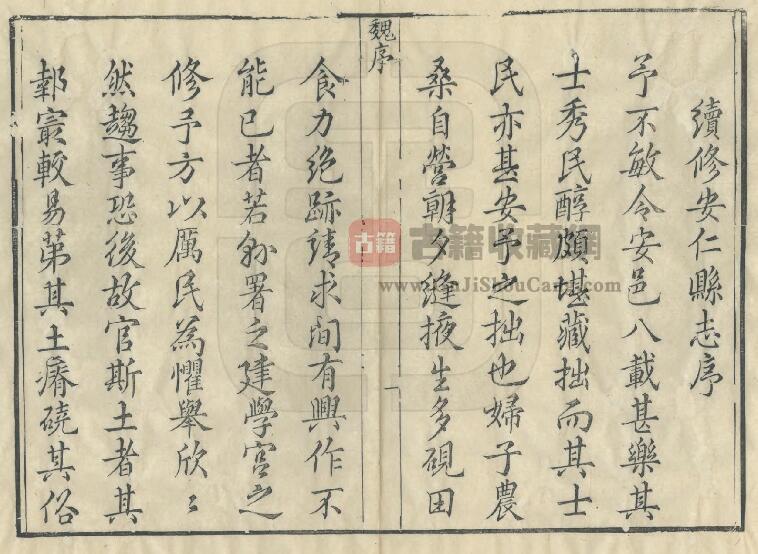 續修安仁縣志序
予不敏令安邑八載甚樂其
士秀民醇頗堪藏拙而其士
民亦甚安予之拙也婦子農
桑自營朝夕縫掖生多硯田
魏序
食力絕跡請求間有興作不
能已者若衙署之建學宮之
修予方以厲民為懼舉欣〻
然趨事恐後故官斯土者其
報最較易第其土瘠磽其俗
古籍
古籍收藏網
www.GuJiShouCang.com